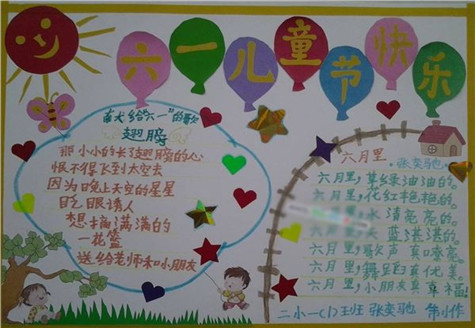 六一儿童节快乐
翅膀
那小小的长了翅膀的心
恨不得飞到太空去
因为晚上天空的星星
眨眼诱人
想摘满满的
一花篮
送给老师和小朋友
六月里 张奕驰
六月里,草绿油油的。
六月里,花红艳艳的。
水清亮亮的。
天蓝湛湛的。
六月里,歌声真嘹亮。
六月里,舞蹈真优美。
六月里,小朋友真幸福!
二小一(1)班 张奕驰 制作